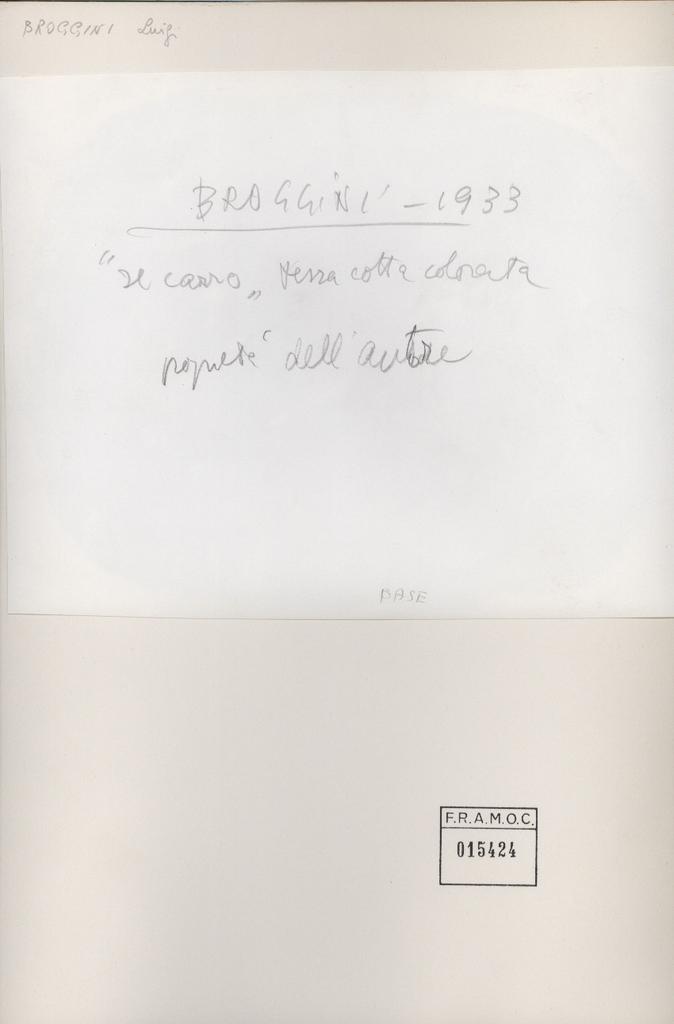 BROGGINI Luigi
BROGGINI - 1933
"Il carro" terra cotta colorata
proprietà dell'autore
BASE
F.R.A.M.O.C.
015424